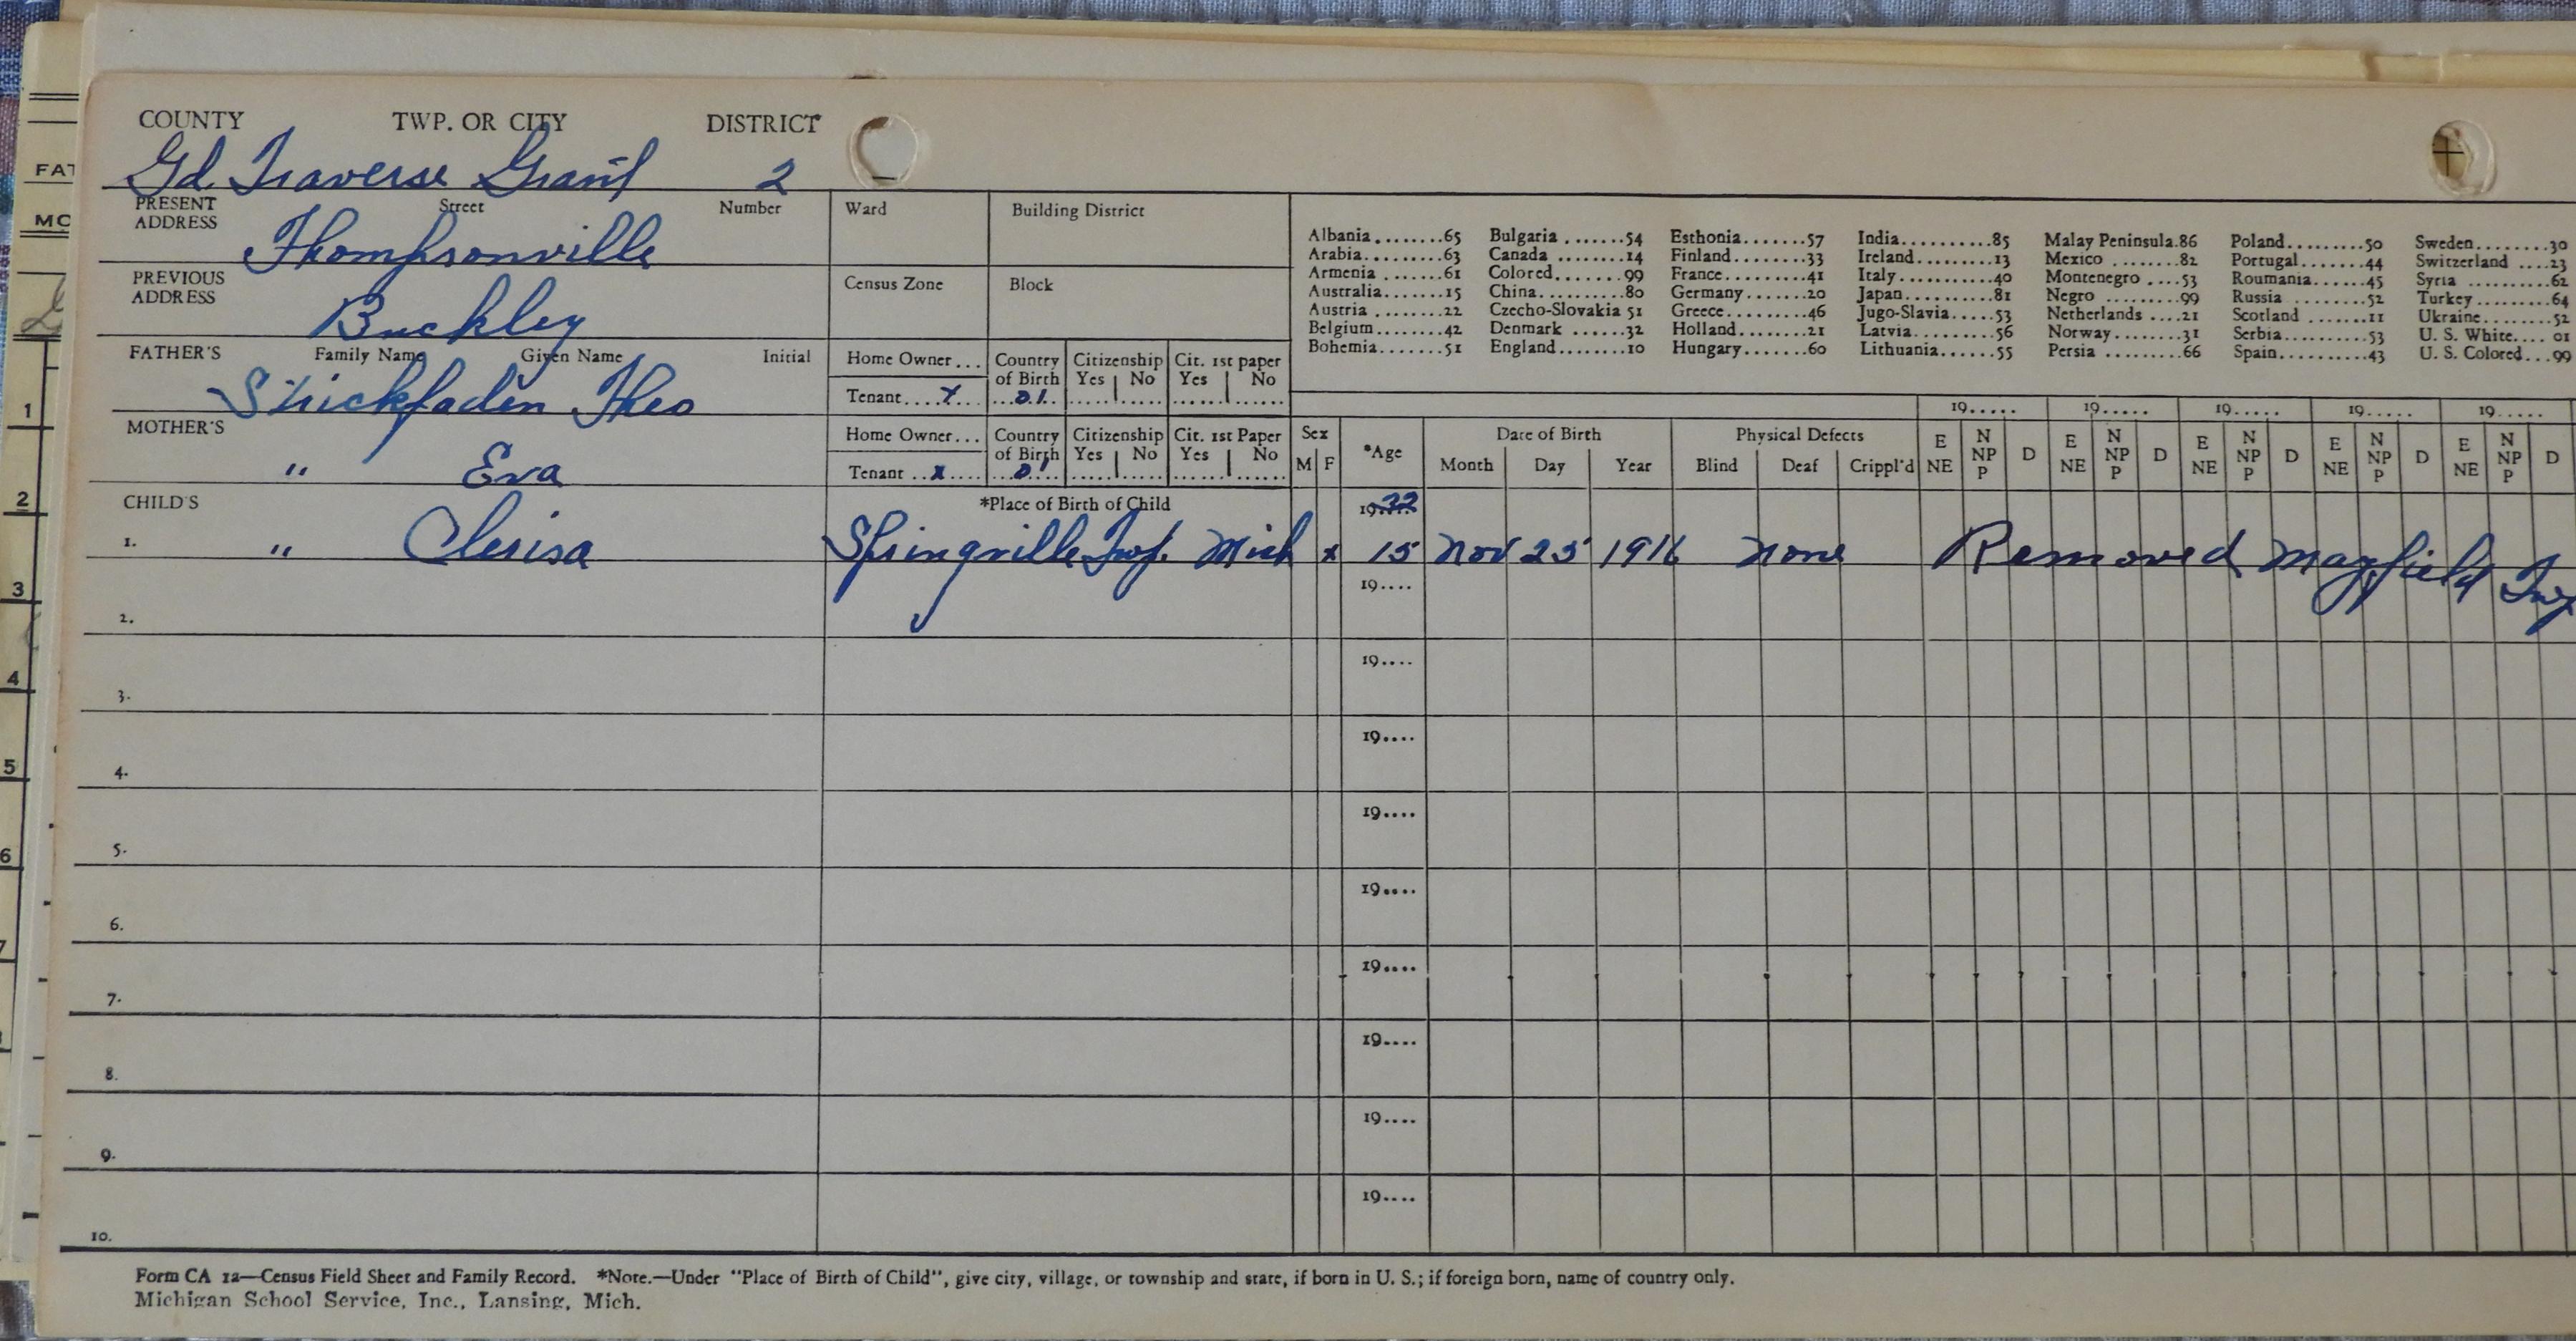 COUNTY TWP. OR CITY DISTRICT
Gd. Traverse Grant 2
PRESENT ADDRESS Street Number Ward Building District
Thompsonville
PREVIOUS ADDRESS Census Zone Block
Buckley
Albania........65 Bulgaria.......54 Esthonia.......57 India..........85 Malay Peninsula.86 Poland.........50 Sweden........30
Arabia.........63 Canada ........14 Finland........33 Ireland........13 Mexico ........82 Portugal.......44 Switzerland ....23
Armenia .......61 Colored........99 France.........41 Italy...........40 Montenegro ....53 Roumania......45 Syria .........62
Australia.......15 China..........80 Germany.......20 Japan..........81 Negro .........99 Russia .........52 Turkey.........64
Austria ........22 Czecho-Slovakia 51 Greece.........46 Jugo-Slavia.....53 Netherlands ....21 Scotland .......11 Ukraine........52
Belgium........42 Denmark .......32 Holland........21 Latvia..........56 Norway.........31 Serbia..........53 U. S. White.... 01
Bohemia.......51 England........10 Hungary.......60 Lithuania......55 Persia .........66 Spain..........43 U. S. Colored...99
FATHER'S Family Name Given Name Initial Home Owner... Country of Birth Citizenship Yes No Cit. 1st paper Yes No
Strickfaden Theo Tenant....x... 01
19..... 19..... 19..... 19..... 19.....
MOTHER'S Home Owner... Country of Birth Citizenship Yes No Cit. 1st Paper Yes No
" Eva Tenant ..x.... 01
Sex M F *Age Date of Birth Month Day Year Physical Defects Blind Deaf Crippl'd
E NE N NP P D E NE N NP P D E NE N NP P D E NE N NP P D E NE N NP P D
CHILD'S *Place of Birth of Child 1932
1. " Clerisa Springville Twp. Mich x 15 Nov 25 1916 None Removed Mayfield Twp
19....
2.
19....
3.
19....
4.
19....
5.
19....
6.
19....
7.
19....
8.
19....
9.
19....
10.
Form CA 1a—Census Field Sheet and Family Record. *Note.—Under "Place of Birth of Child", give city, village, or township and state, if born in U. S.; if foreign born, name of country only.
Michigan School Service, Inc., Lansing, Mich.
FAT
MO
1
2
3
4
5
6
7